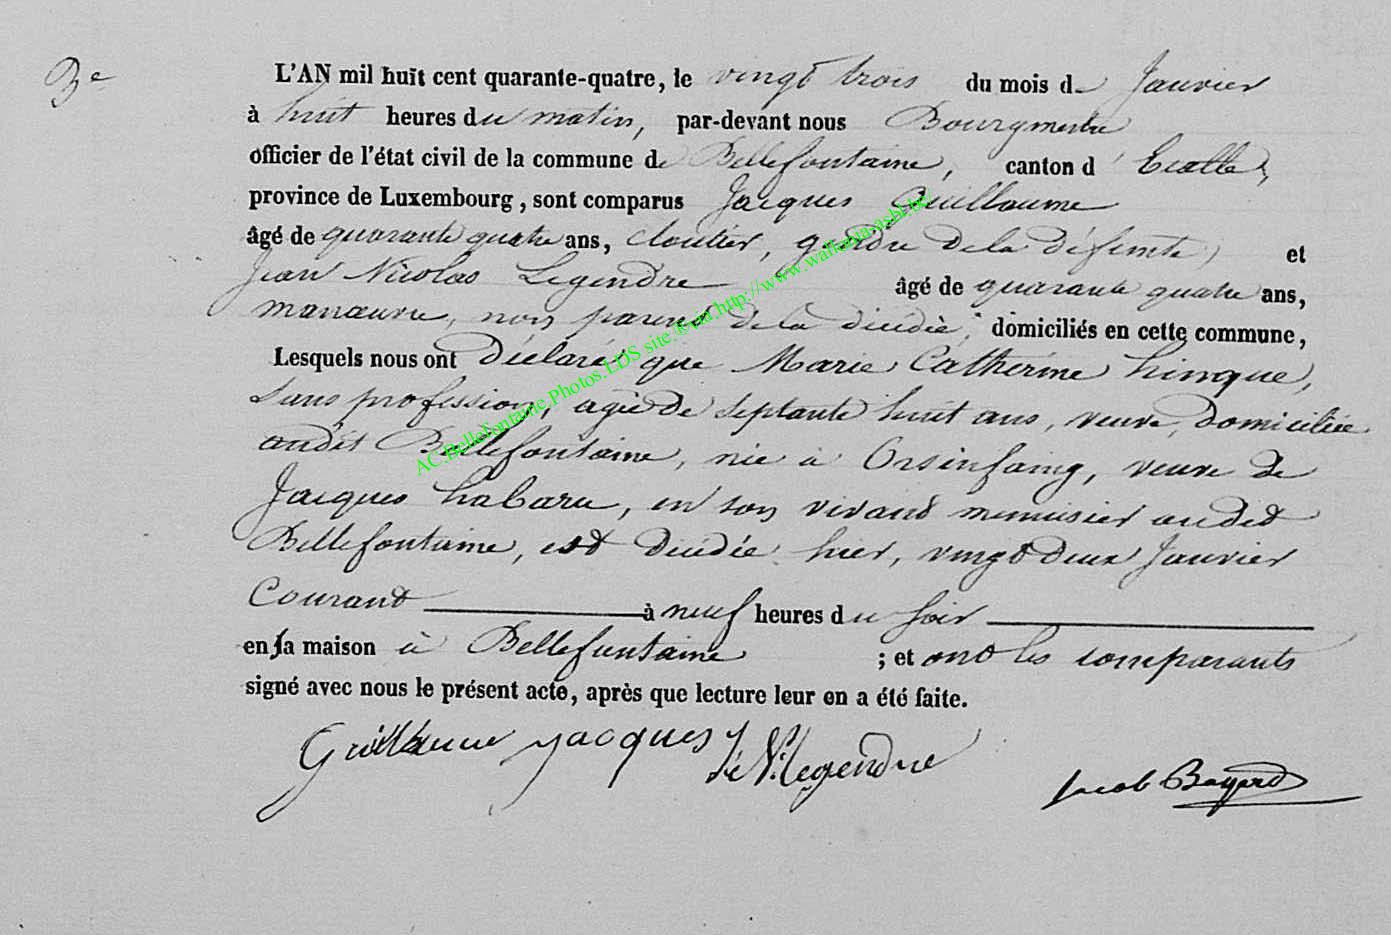 3e
L'AN mil huit cent quarante-quatre, le vingt trois du mois de Janvier
à huit heures du matin, par-devant nous Bourgmestre
officier de l'état civil de la commune de Bellefontaine, canton d'Etalle,
province de Luxembourg, sont comparus Jacques Guillaume
âgé de quarante quatre ans, cloutier, gendre de la défunte, et
Jean Nicolas Legendre âgé de quarante quatre ans,
manœuvre, non parent de la décédée, domiciliés en cette commune,
Lesquels nous ont déclaré que Marie Catherine hinque,
sans profession, agée de septante huit ans, veuve, domiciliée
audit Bellefontaine, née à Orsinfaing, veuve de
Jacques habaru, en son vivant menuisier audit
Bellefontaine, est décédée hier, vingt deux Janvier
Courant à neuf heures du soir
en sa maison à Bellefontaine ; et ont les comparants
signé avec nous le présent acte, après que lecture leur en a été faite.
Guillaume jacques J N Legendre Jacob Bayard
AC.Bellefontaine.Photos.LDS site:® via http://www.wallonia-asbl.be/